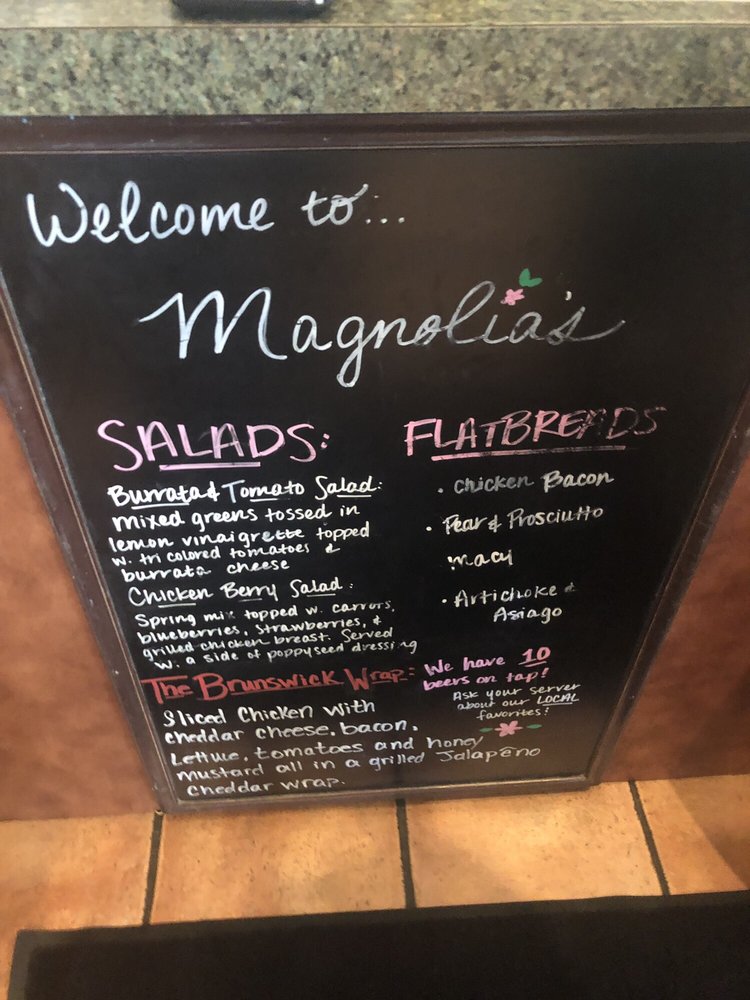 Welcome to...
Magnolia's
SALADS:
Burrata & Tomato Salad:
mixed greens tossed in
lemon vinaigrette topped
w. tri colored tomatoes &
burrata cheese
Chicken Berry Salad:
Spring mix topped w. carrots,
blueberries, strawberries, &
grilled chicken breast. Served
w. a side of poppyseed dressing
FLATBREADS
• Chicken Bacon
• Pear & Prosciutto
• Artichoke &
Asiago
The Brunswick Wrap:
Sliced Chicken with
cheddar cheese, bacon,
lettuce, tomatoes and honey
mustard all in a grilled Jalapeño
cheddar wrap.
We have 10
beers on tap!
Ask your server
about our LOCAL
favorites!